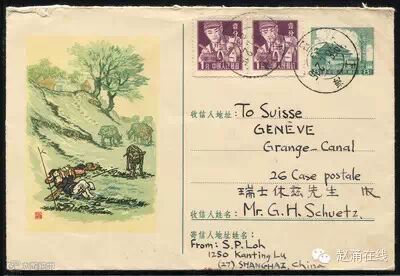 收信人地址:
To Suisse
GENÈVE
Grange-Canal
26 Case postale
瑞士休兹先生 收
收信人姓名: Mr. G.H. Schuetz.
寄信人地址姓名:
From: S.P. Loh
1250 Kanting Lu
(27) SHANGHAI, China
赵涌在线